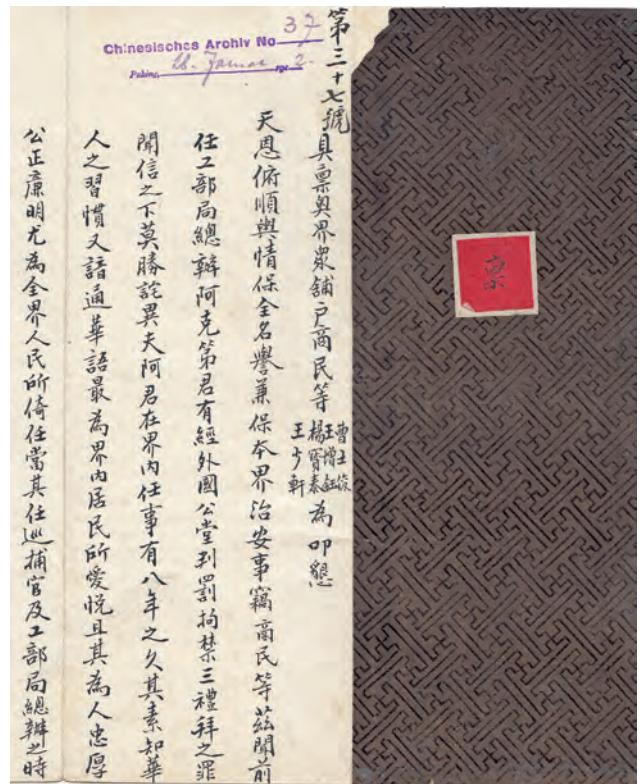 稟
第三十七號
Chinesisches Archiv No 37
Peking, 28. Januar 191 2.
具稟奧界眾舖戶商民等
王少軒
為叩懇
天恩俯順輿情保全名譽兼保本界治安事竊商民等茲聞前
任工部局總辦阿克第君有經外國公堂判罰拘禁三禮拜之罪
聞信之下莫勝詫異夫阿君在界內任事有八年之久其素知華
人之習慣又諳通華語最為界內居民所愛悅且其為人忠厚
公正廉明尤為全界人民所倚任當其任巡捕官及工部局總辦之時